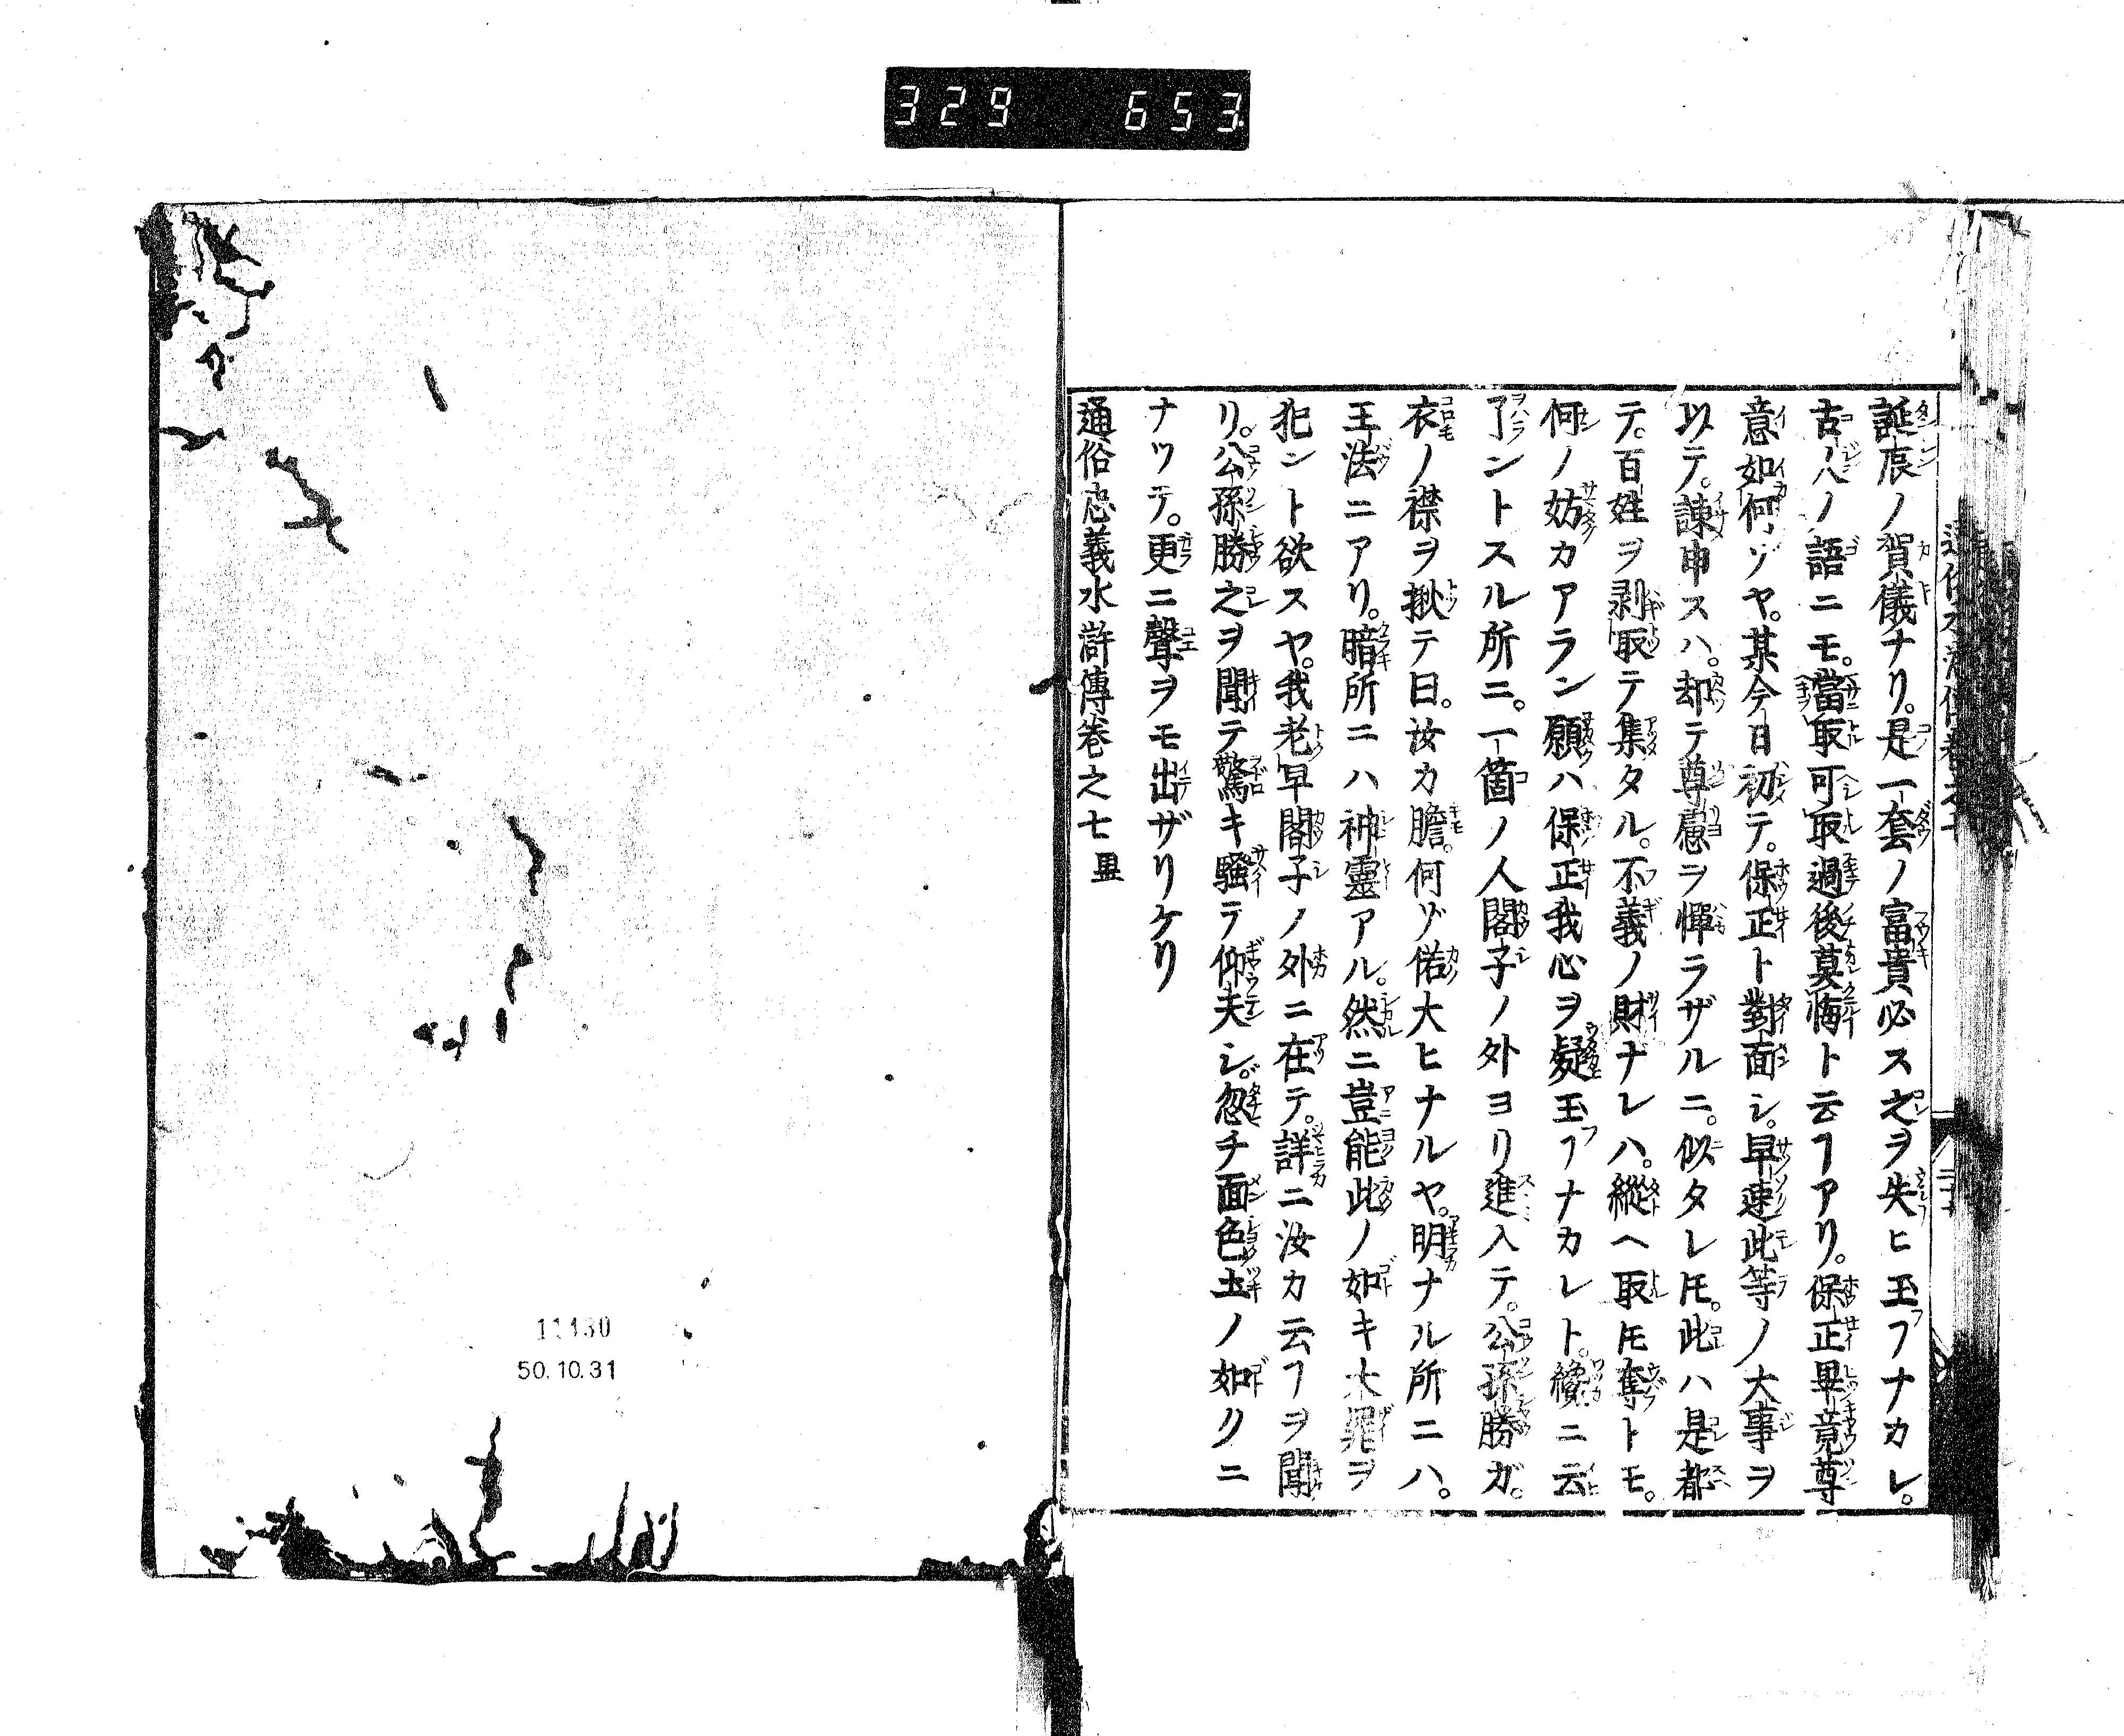 329 653
誕辰ノ賀儀ナリ。是一套ノ富貴必ス之ヲ失ヒ玉フナカレ。
古人ノ語ニモ。當取可取過後莫悔ト云ヿアリ。保正畢竟尊
意如何ゾヤ。某今日初テ。保正ト對面シ。早速此等ノ大事ヲ
以テ。諫申スハ。却テ尊慮ヲ憚ラザルニ。似タレ𪜈。此ハ是都
テ。百姓ヲ剥取テ集タル。不義ノ財ナレハ。縱ヘ取𪜈奪トモ。
何ノ妨カアラン願ハ保正我心ヲ疑玉フナカレト。纔ニ云
了ントスル所ニ。一箇ノ人閣子ノ外ヨリ進入テ。公孫勝ガ。
衣ノ襟ヲ揪テ曰。汝カ膽。何ゾ偌大ヒナルヤ。明ナル所ニハ。
王法ニアリ。暗所ニハ神靈アル。然ニ豈能此ノ如キ大罪ヲ
犯ント欲スヤ。我老早閣子ノ外ニ在テ。詳ニ汝カ云ヿヲ聞
リ。公孫勝之ヲ聞テ驚キ騷テ仰天シ。忽チ面色土ノ如クニ
ナツテ。更ニ聲ヲモ出ザリケリ
通俗忠義水滸傳卷之七畢
11430
50.10.31